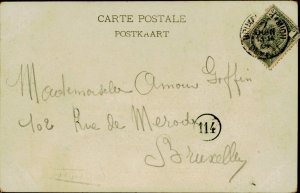 CARTE POSTALE
POSTKAART
Mademoiselle Amour Goffin
102 Rue de Merode
114
Bruxelles